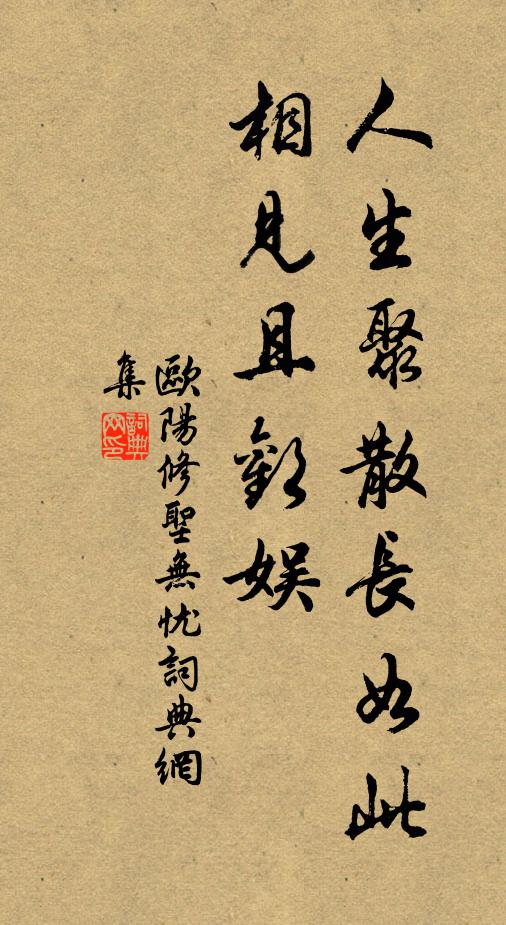 人生聚散長如此
相見且歡娛
歐陽修聖無忧詞典網
集
詞典網印